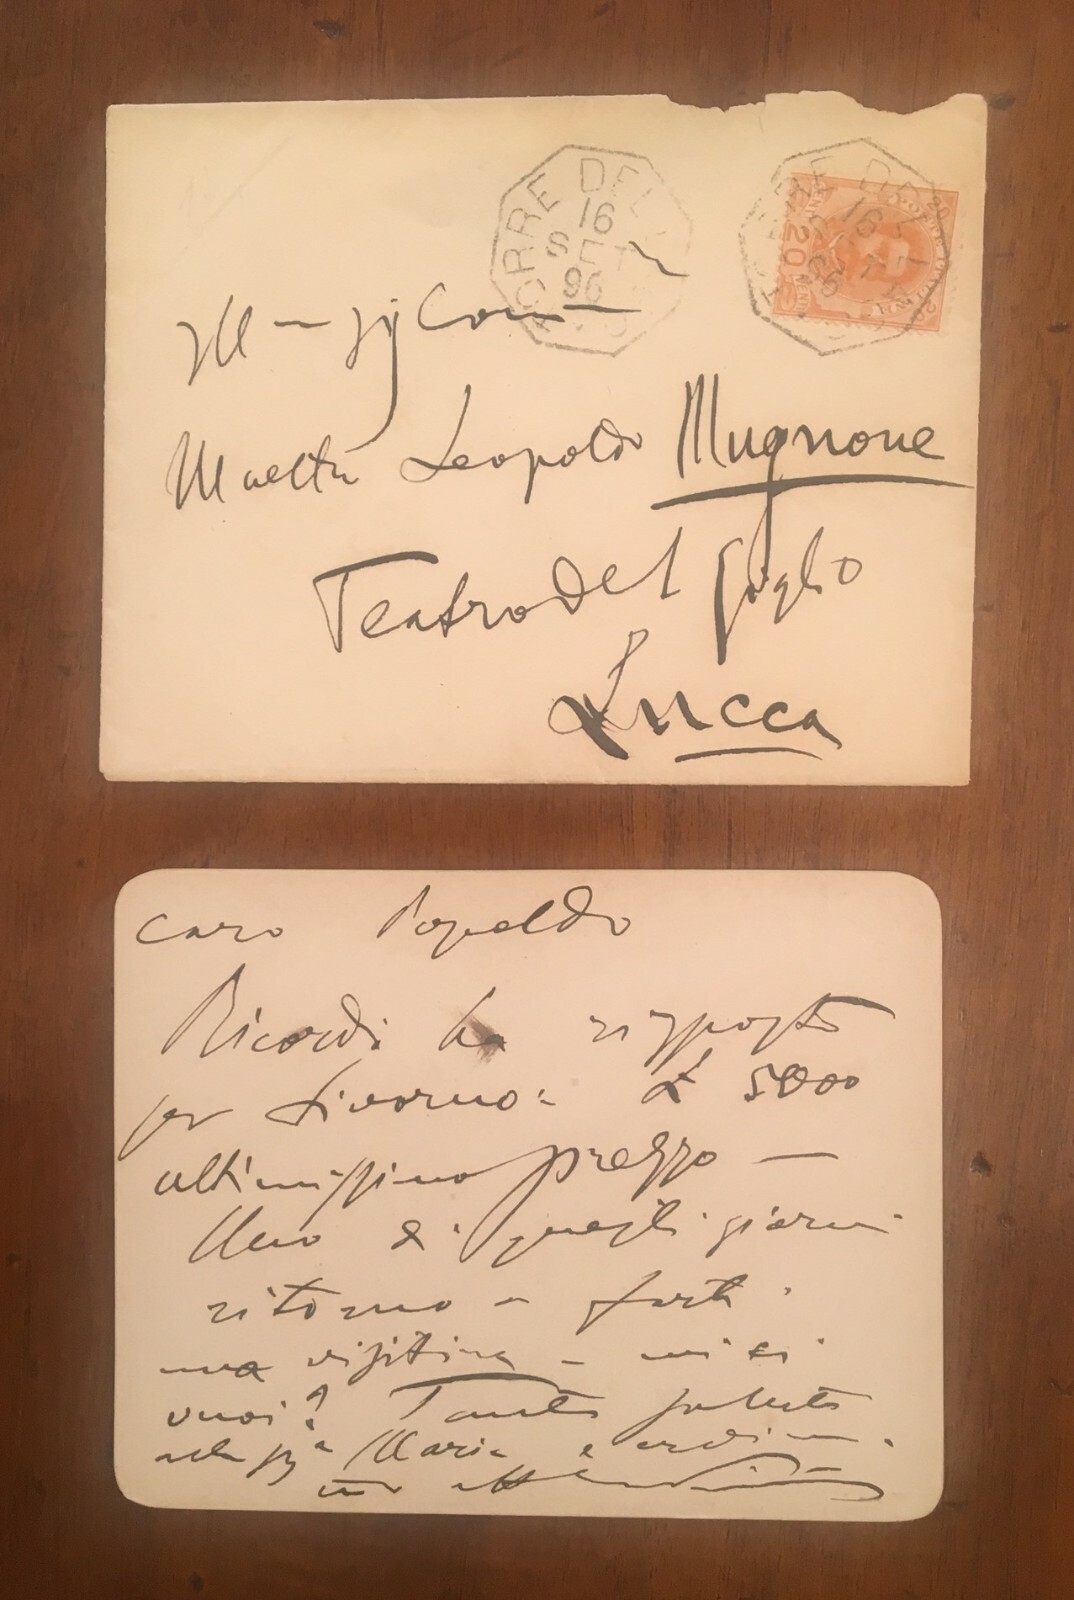 TORRE DEL
16
SET
96
TORRE DEL
16
20
Ill Sig Com
Maestro Leopoldo Mugnone
Teatro del Giglio
Lucca
caro Popoldo
Ricordi ha risposto
per Livorno: £ 5000
ultimissimo prezzo —
Uno di questi giorni
ritorno a farti
una visitina – mi ci
vuoi? Tanti saluti
alla Sigª Maria e
tuo